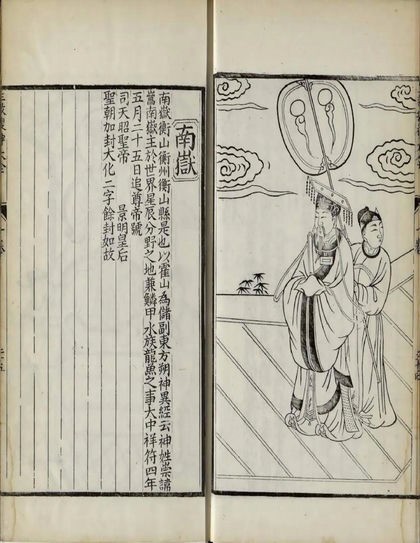 南嶽
南嶽衡山衡州衡山縣是也以霍山為儲副東方朔神異經云神姓崇諱
𡽻南嶽主於世界星辰分野之地兼鱗甲水族龍魚之事大中祥符四年
五月二十五日追尊帝號
司天昭聖帝 景明皇后
聖朝加封大化二字餘封如故